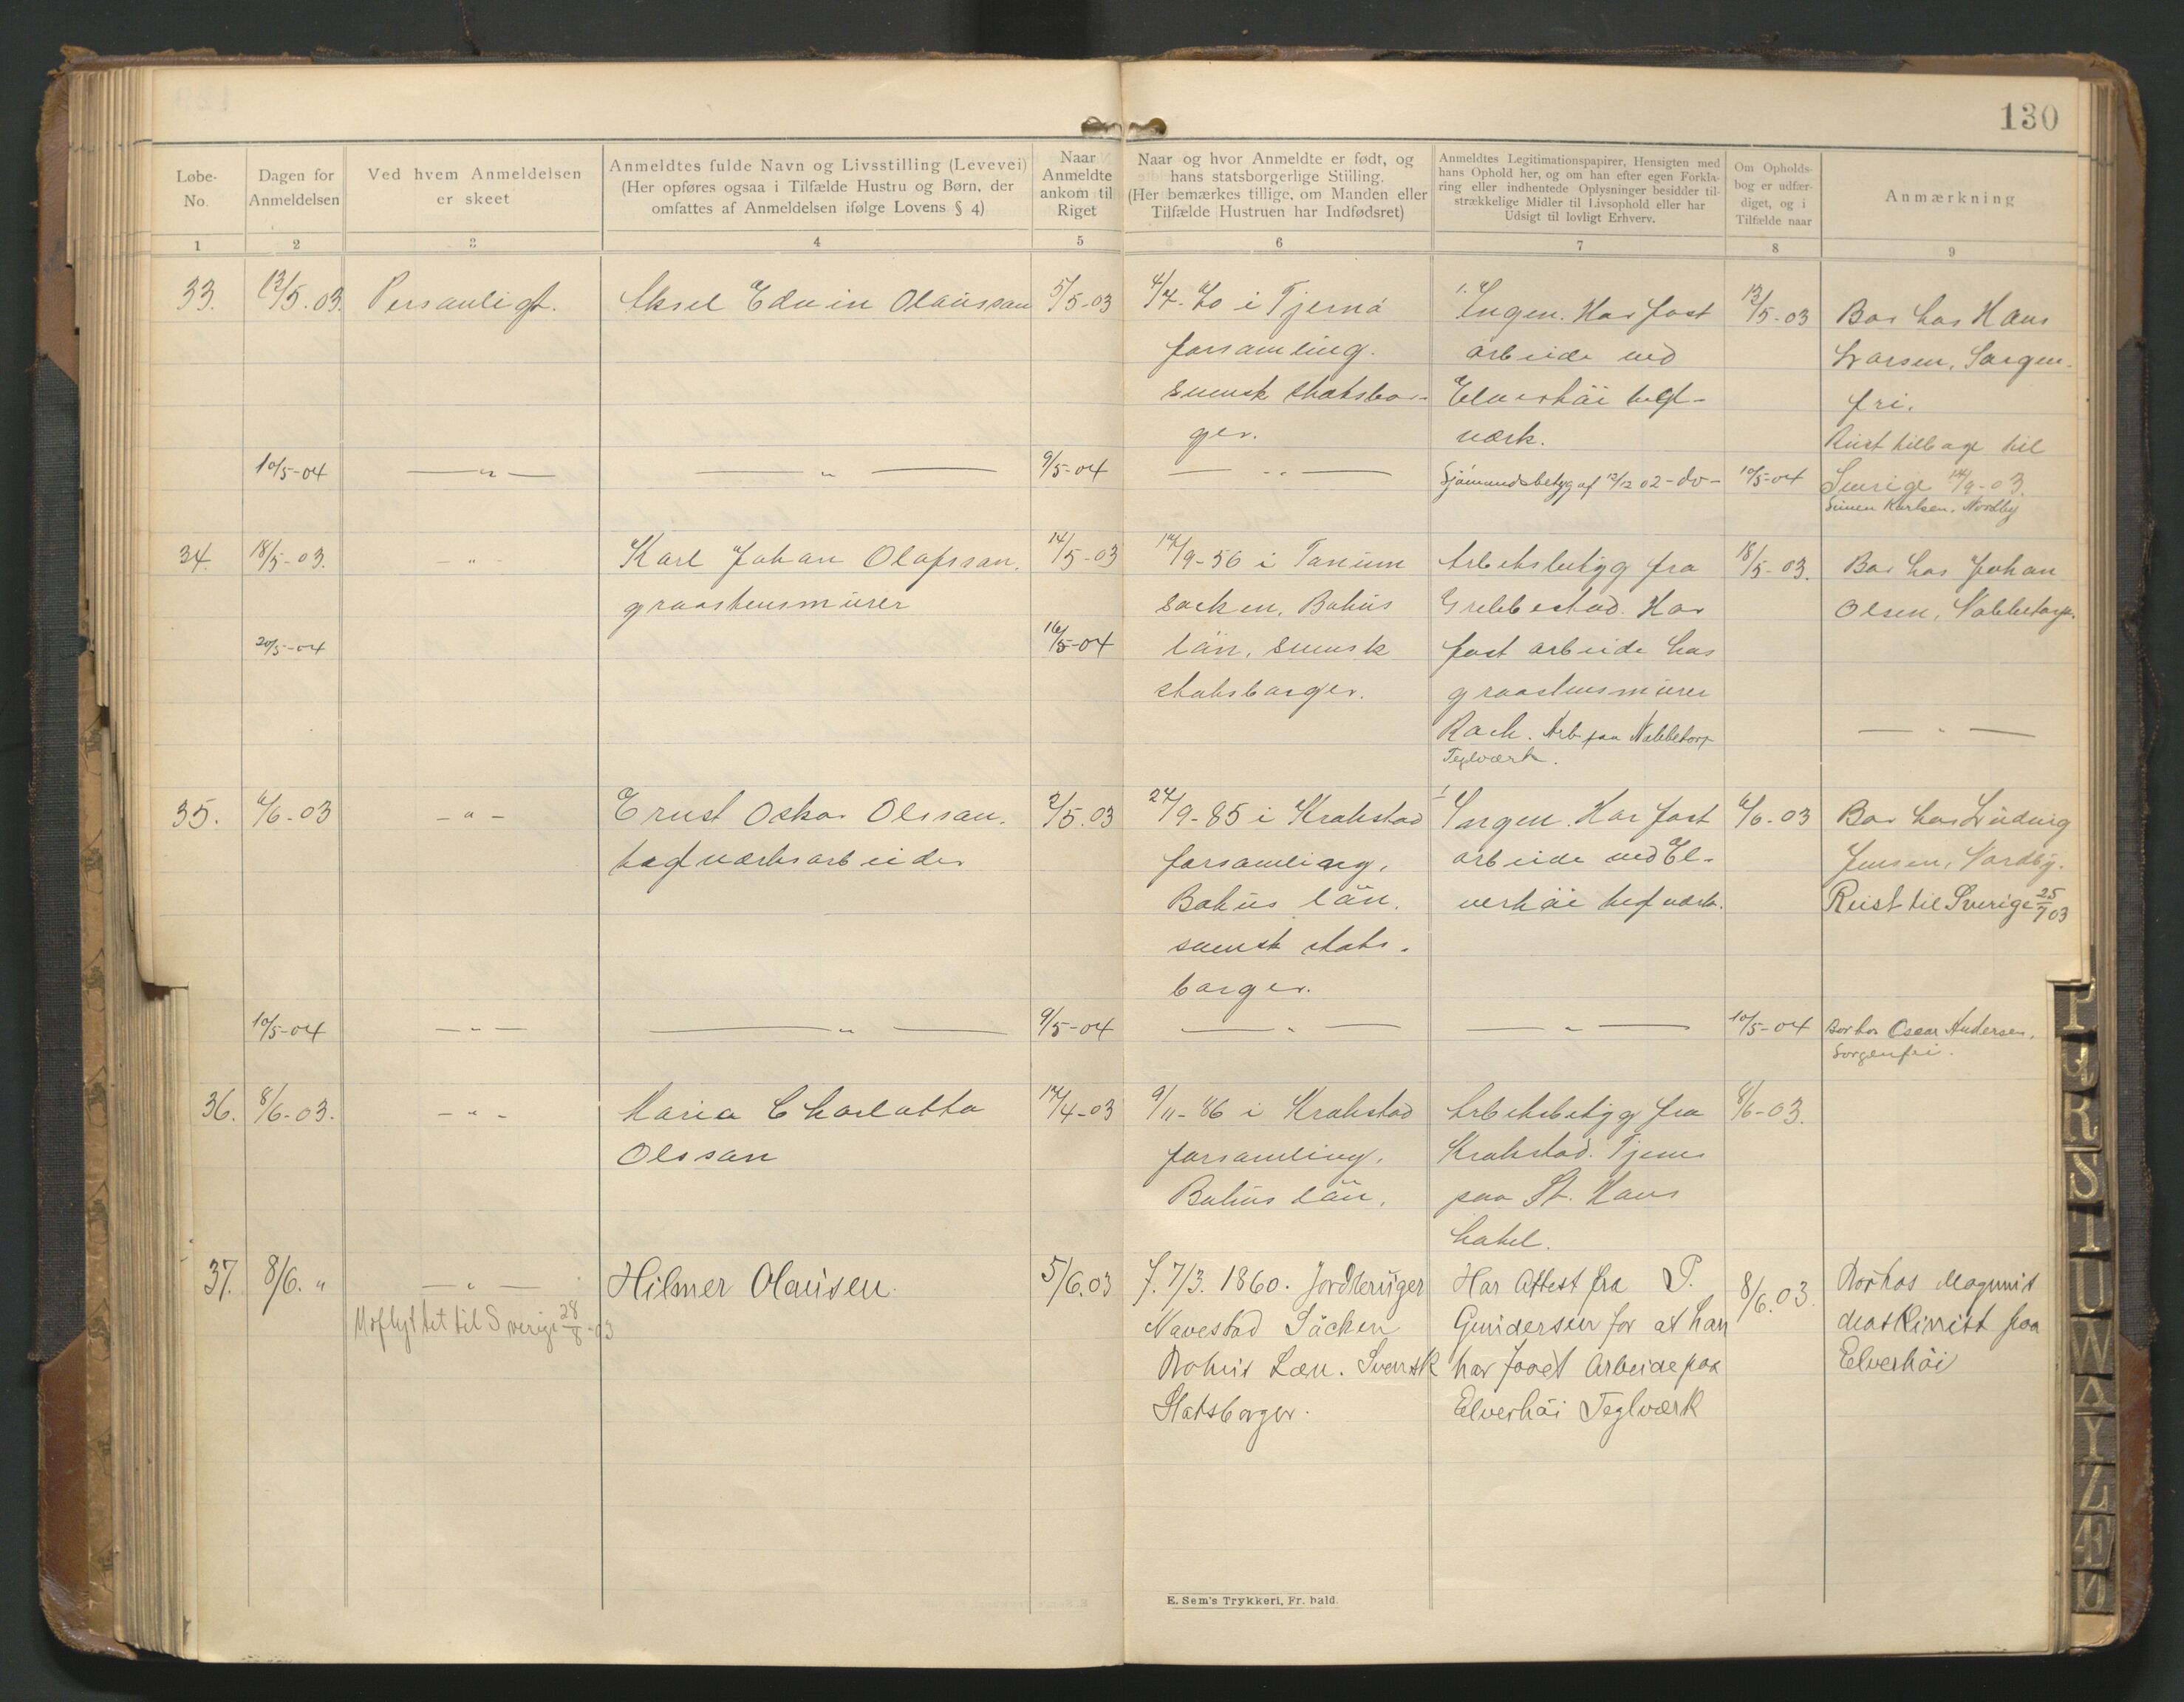 130
Løbe-
No.
Dagen for
Anmeldelsen
Ved hvem Anmeldelsen
er skeet
Anmeldtes fulde Navn og Livsstilling (Levevei)
(Her opføres ogsaa i Tilfælde Hustru og Børn, der
omfattes af Anmeldelsen ifølge Lovens § 4)
Naar
Anmeldte
ankom til
Riget
Naar og hvor Anmeldte er født, og
hans statsborgerlige Stilling.
(Her bemærkes tillige, om Manden eller
Tilfælde Hustruen har Indfødsret)
Anmeldtes Legitimationspapirer, Hensigten med
hans Ophold her, og om han efter egen Forkla-
ring eller indhentede Oplysninger besidder til-
strækkelige Midler til Livsophold eller har
Udsigt til lovligt Erhverv.
Om Opholds-
bog er udfær-
diget, og i
Tilfælde naar
Anmærkning
1 2 3 4 5 6 7 8 9
33.
13/5.03.
Personligt.
Aksel Edvin Olausson
5/5-03
i Tjernö
forsamling.
svensk statsbor-
ger.
Ingen. Har fast
arbeide ved
Elverhöi tegl-
værk.
13/5-03
Bor hos Hans
Larsen, Sorgen-
fri.
Reist tilbage til
Sverige 14/9-03.
10/5-04
— „ —
— „ —
9/5-04
— „ —
Sjömandsbetyg af 12/12 02 -do-
10/5-04
Simen Karlsen, Nordby
34.
18/5-03.
— „ —
Karl Johan Olofsson.
graastensmurer
14/5-03
14/9-56 i Tanum
socken, Bohus
län, svensk
statsborger.
Arbetsbetyg fra
Grebbestad. Har
fast arbeide hos
graastensmurer
Rack. Arb. paa Nabbetorp
Teglværk.
18/5-03.
Bor hos Johan
Olsen, Nabbetorp.
20/5-04
16/5-04
— „ —
35.
6/6-03
— „ —
Ernst Oskar Olsson.
teglværksarbeider
2/5.03
24/9-85 i Krokstad
forsamling,
Bohus län.
svensk stats-
borger.
Ingen. Har fast
arbeide ved El-
verhöi teglværk.
6/6-03
Bor hos Ludvig
Jensen, Nordby.
Reist til Sverige 25/7 03
10/5-04
— „ —
— „ —
9/5-04
— „ —
— „ —
10/5-04
Bor hos Oscar Andersen,
Sorgenfri.
36.
8/6-03.
— „ —
Maria Charlotta
Olsson
14/4-03
9/11-86 i Krokstad
forsamling,
Bohus län.
Arbetsbetyg fra
Krokstad. Tjener
paa St. Hans
hotel.
8/6-03.
37.
8/6. „
— „ —
Hilmer Olausen.
5/6.03
f. 7/3. 1860. Jordbruger
Navestad Säcken
Bohus Læn. Svensk
Statsborger.
Har Attest fra P.
Gundersen for at han
har faaet Arbeide paa
Elverhöi Teglværk
8/6.03.
Bor hos Magnus
maskinist paa
Elverhöi
Udflyttet til Sverige 28/8-03
E. Sem's Trykkeri, Fr. hald.
P
Q
R
S
T
U
W
A
Y
Z
Æ
Ø